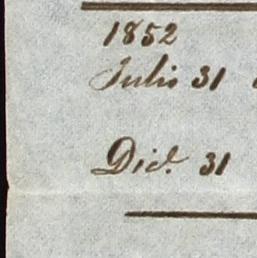 1852
Julio 31
Dice. 31